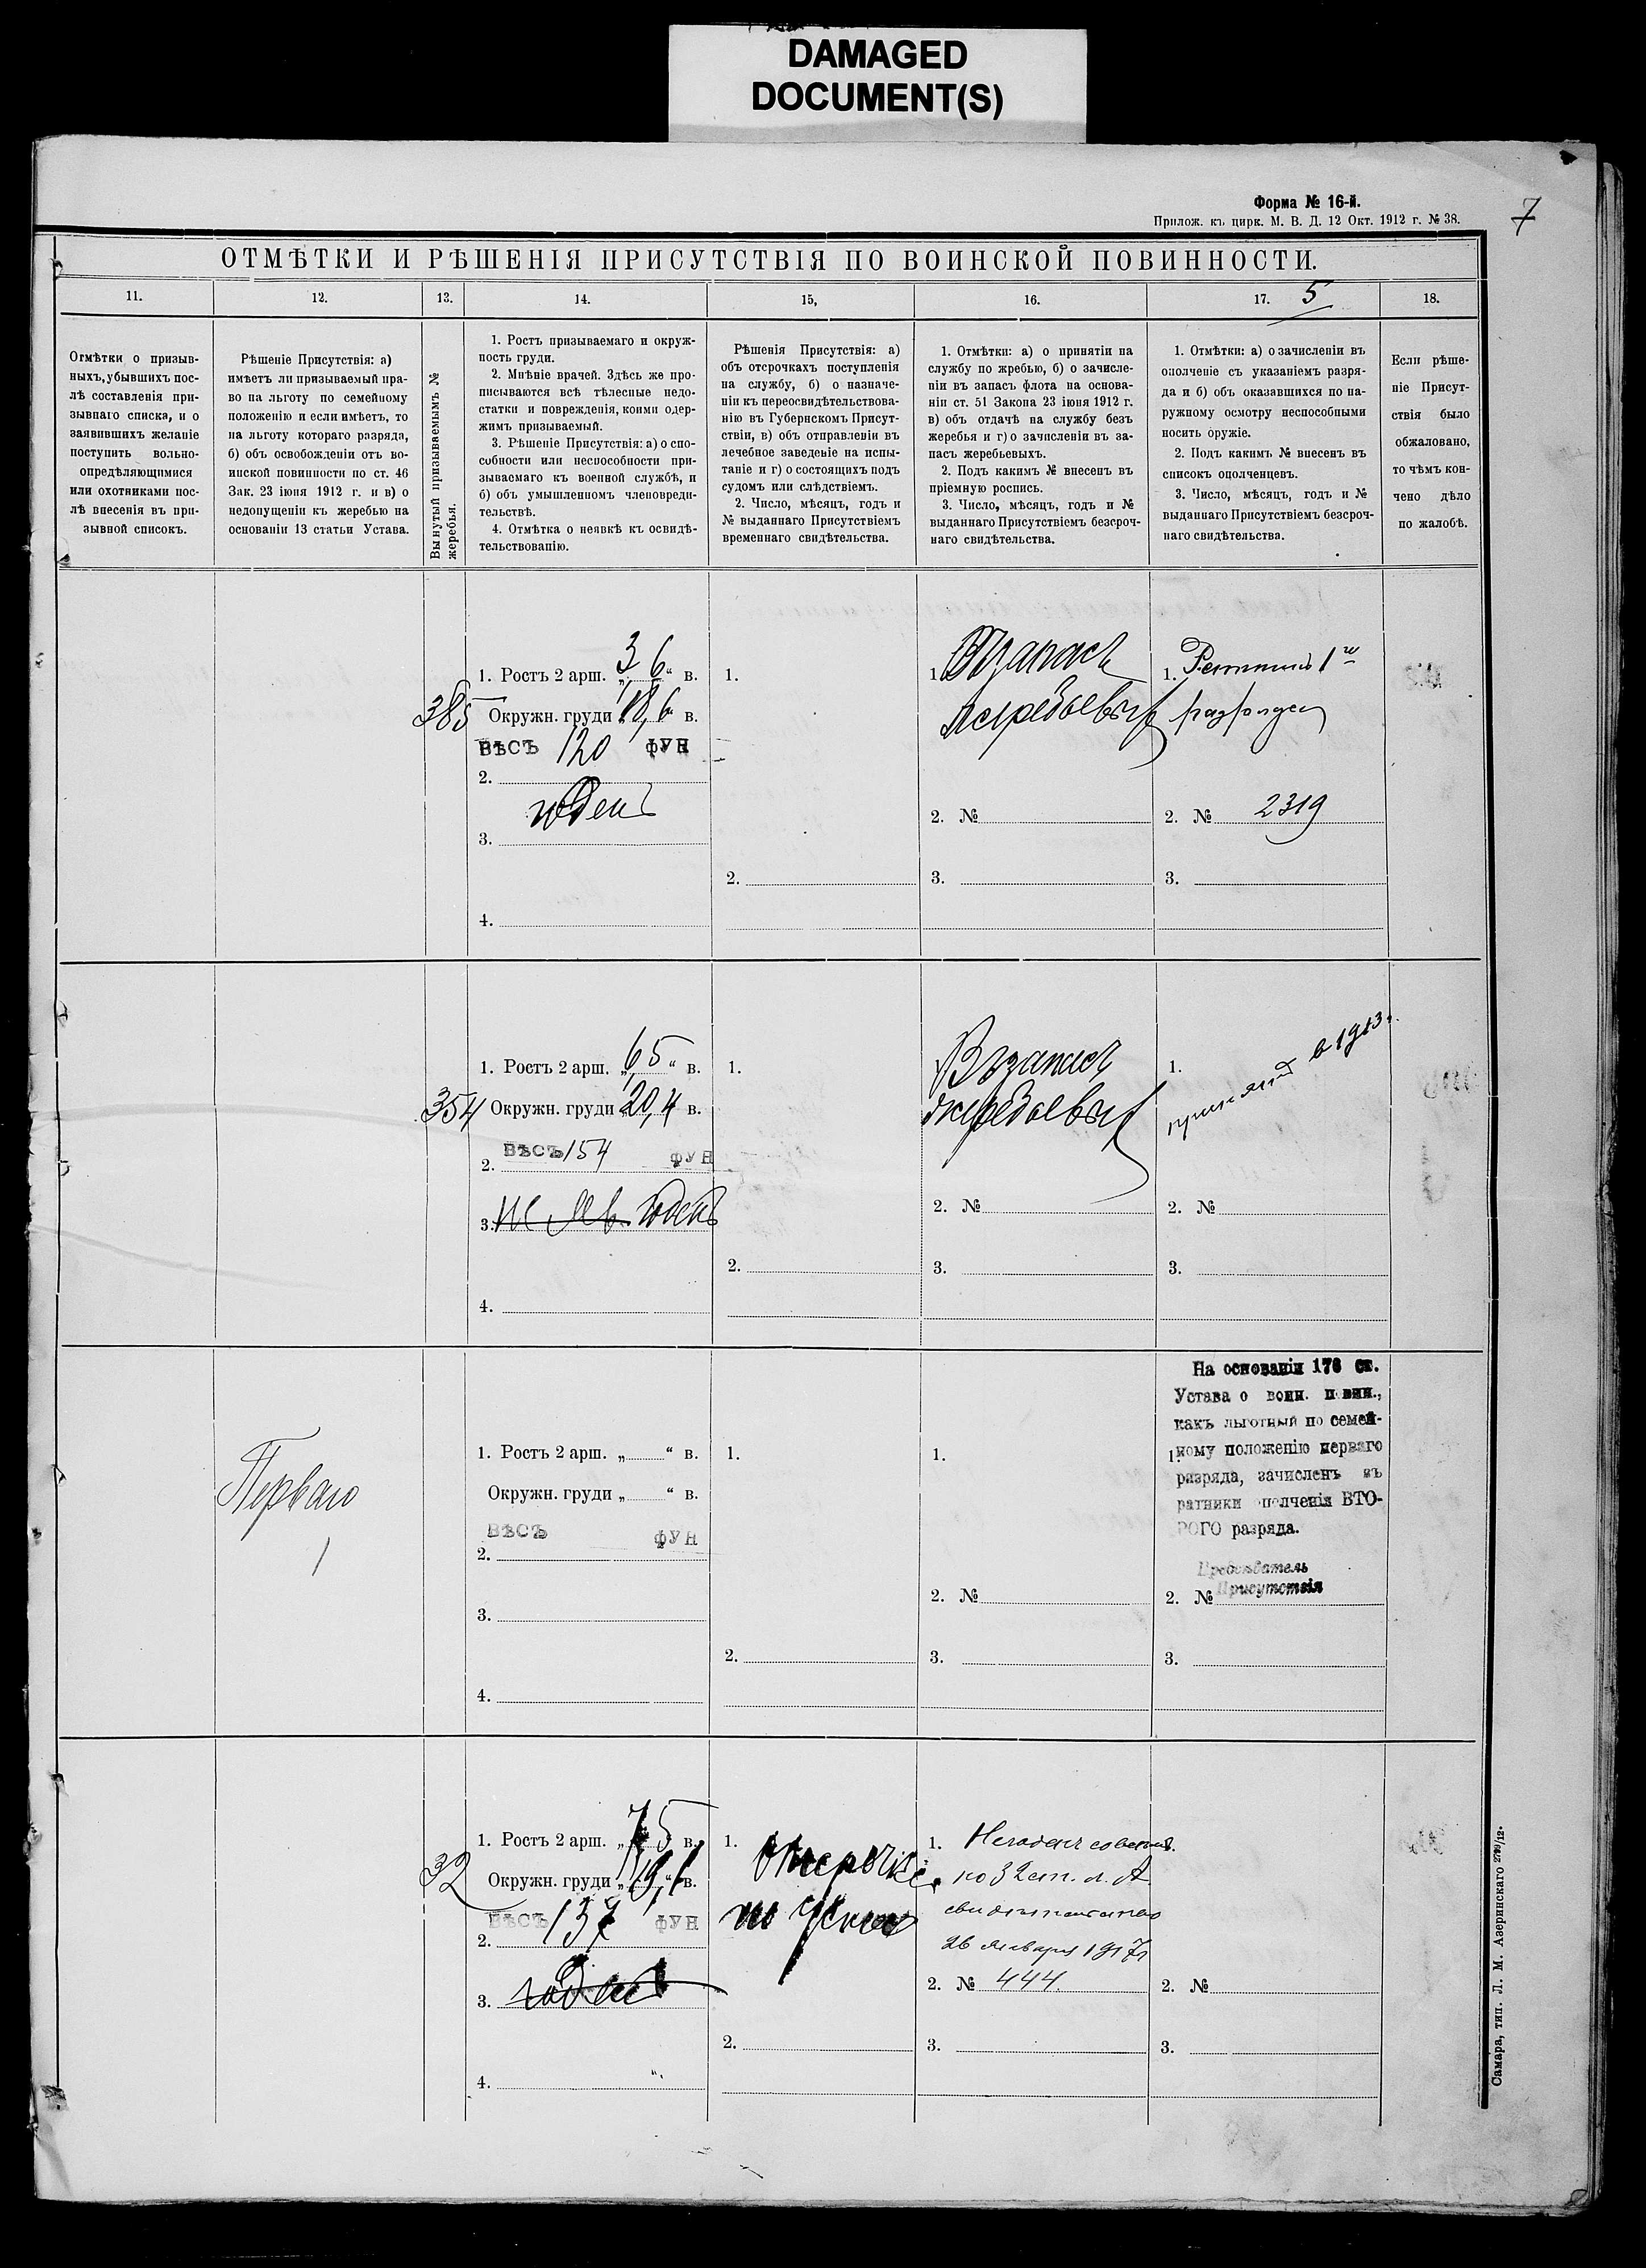 DAMAGED
DOCUMENT(S)
Форма № 16-й.
Прилож. къ цирк. М. В. Д. 12 Окт. 1912 г. № 38.
7
ОТМѢТКИ И РѢШЕНІЯ ПРИСУТСТВІЯ ПО ВОИНСКОЙ ПОВИННОСТИ.
11.
12.
13.
14.
15,
16.
17. 5
18.
Отмѣтки о призыв-
ныхъ, убывшихъ пос-
лѣ составленія при-
зывнаго списка, и о
заявившихъ желаніе
поступить вольно-
опредѣляющимися
или охотниками пос-
лѣ внесенія въ при-
зывной списокъ.
Рѣшеніе Присутствія: а)
имѣетъ ли призываемый пра-
во на льготу по семейному
положенію и если имѣетъ, то
на льготу котораго разряда,
б) объ освобожденіи отъ во-
инской повинности по ст. 46
Зак. 23 іюня 1912 г. и в) о
недопущеніи къ жеребью на
основаніи 13 статьи Устава.
Вынутый призываемымъ №
жеребья.
1. Ростъ призываемаго и окруж-
ность груди.
2. Мнѣніе врачей. Здѣсь же про-
писываются всѣ тѣлесные недо-
статки и поврежденія, коими одер-
жимъ призываемый.
3. Рѣшеніе Присутствія: а) о спо-
собности или неспособности при-
зываемаго къ военной службѣ, и
б) объ умышленномъ членовреди-
тельствѣ.
4. Отмѣтка о неявкѣ къ освидѣ-
тельствованію.
Рѣшенія Присутствія: а)
объ отсрочкахъ поступленія
на службу, б) о назначе-
ніи къ переосвидѣтельствова-
нію въ Губернскомъ Присут-
ствіи, в) объ отправленіи въ
лечебное заведеніе на испы-
таніе и г) о состоящихъ подъ
судомъ или слѣдствіемъ.
2. Число, мѣсяцъ, годъ и
№ выданнаго Присутствіемъ
временнаго свидѣтельства.
1. Отмѣтки: а) о принятіи на
службу по жребью, б) о зачисле-
ніи въ запасъ флота на основа-
ніи ст. 51 Закона 23 іюня 1912 г.
в) объ отдачѣ на службу безъ
жеребья и г) о зачисленіи въ за-
пасъ жеребьевыхъ.
2. Подъ какимъ № внесенъ въ
пріемную роспись.
3. Число, мѣсяцъ, годъ и №
выданнаго Присутствіемъ безсроч-
наго свидѣтельства.
1. Отмѣтки: а) о зачисленіи въ
ополченіе съ указаніемъ разря-
да и б) объ оказавшихся по на-
ружному осмотру неспособными
носить оружіе.
2. Подъ какимъ № внесенъ въ
списокъ ополченцевъ.
3. Число, мѣсяцъ, годъ и №
выданнаго Присутствіемъ безсроч-
наго свидѣтельства.
Если рѣше-
ніе Присут-
ствія было
обжаловано,
то чѣмъ кон-
чено дѣло
по жалобѣ.
385
1. Ростъ 2 арш. „3,6“ в.
Окружн. груди „18,6“ в.
ВѢСЪ 120 ФУН
2.
годенъ
3.
4.
1.
2.
1. Въ запасъ
жеребьевыхъ
2. №
3.
1. Ратникъ 1го
разряда
2. № 2319
3.
354
1. Ростъ 2 арш. „6,5“ в.
Окружн. груди „20,4 в.
2. ВѢСЪ 154 ФУН
3. не яв. годенъ
4.
1.
2.
Въ запасъ
жеребьевыхъ
2. №
3.
1.
принятъ в 1913.
2. №
3.
Перваго
1
1. Ростъ 2 арш. „ “ в.
Окружн. груди „ “ в.
ВѢСЪ ФУН
2.
3.
4.
1.
2.
1.
2. №
3.
На основаніи 176 ст.
Устава о воин. повин.,
какъ льготный по семей-
1. ному положенію перваго
разряда, зачисленъ въ
ратники ополченія ВТО-
РОГО разряда.
Предсѣдатель
Присутствія
2. №
3.
32
1. Ростъ 2 арш. „7,5 в.
Окружн. груди „19,6“ в.
ВѢСЪ 137 ФУН
2.
3. годенъ
4.
1. Отсрочка
по
2.
1. Негоденъ совсемъ
по 32 ст. л. А
26 января 1917г
2. № 444.
3.
2. №
3.
Самара, тип. Л. М. Азеринскаго 279/12.